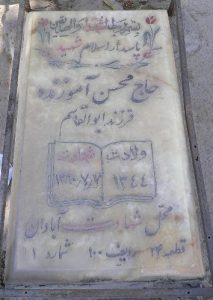 پاسدار اسلام شهید
حاج محسن آموزنده
فرزند ابوالقاسم
ولادت شهادت
۱۳۴۴ ۱۳۶۰/۷/۷
محل شهادت آبادان
قطعه ۲۴ ردیف ۱۰۰ شماره ۱